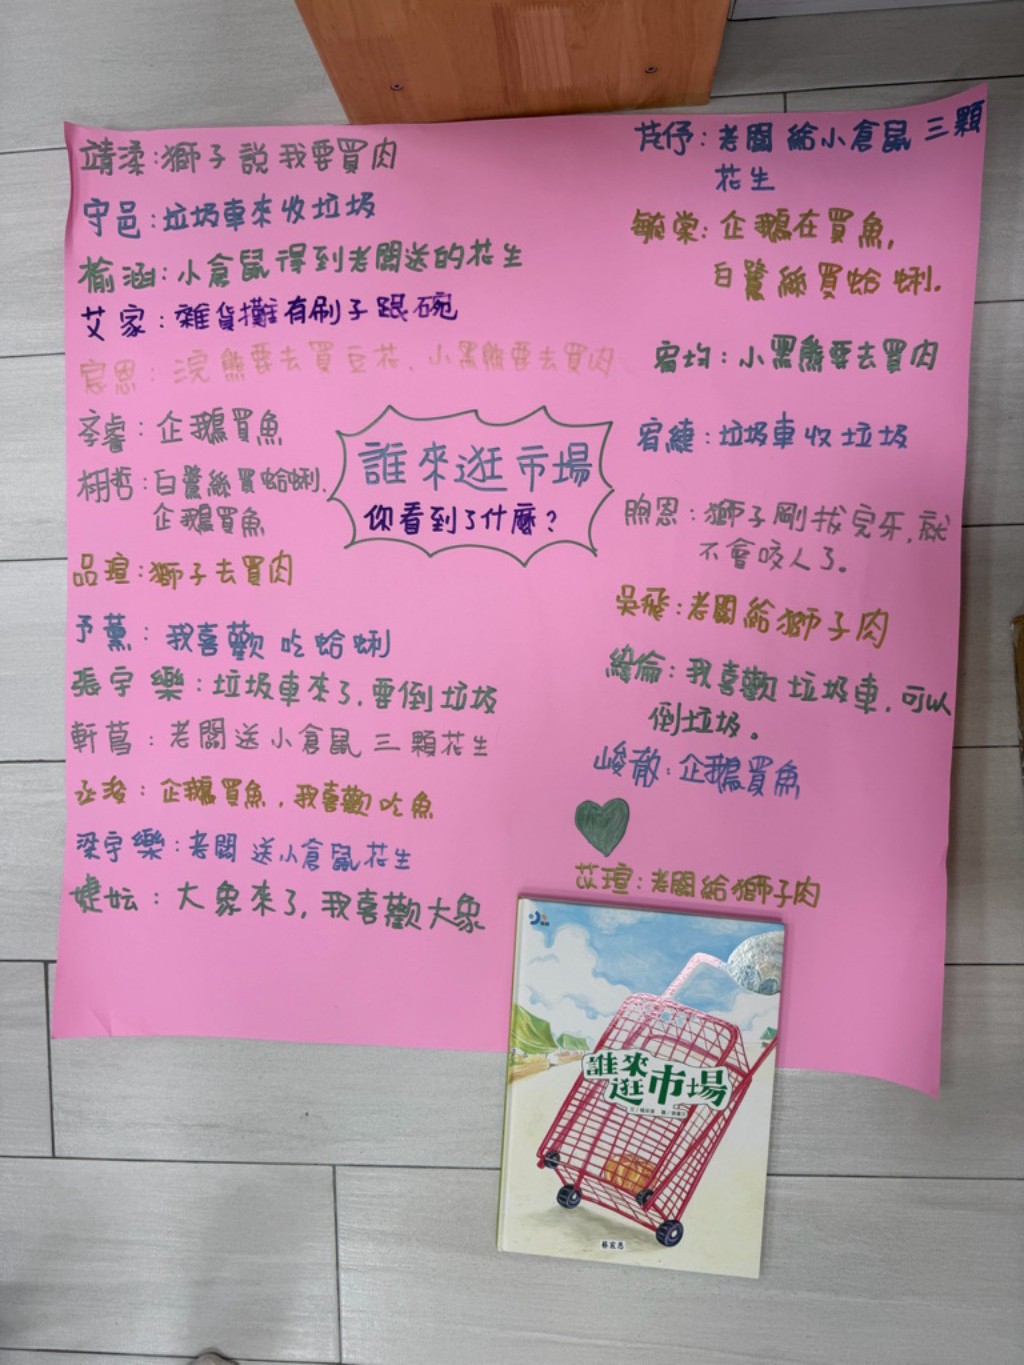 靖柔:獅子說我要買肉
守邑:垃圾車來收垃圾
榆涵:小倉鼠得到老闆送的花生
艾家:雜貨攤有刷子跟碗
宸恩:浣熊要去買豆花,小黑熊要去買肉
睿:企鵝買魚
栩哲:白鷺絲買蛤蜊.
企鵝買魚
品瑄:獅子去買肉
予薰:我喜歡吃蛤蜊
張宇樂:垃圾車來了,要倒垃圾
軒蔦:老闆送小倉鼠三顆花生
丞浚:企鵝買魚,我喜歡吃魚
梁宇樂:老闆送小倉鼠花生
婕妘:大象來了,我喜歡大象
誰來逛市場
你看到了什麼?
芃伃:老闆給小倉鼠三顆
花生
毓棠:企鵝在買魚,
白鷺絲買蛤蜊.
宥均:小黑熊要去買肉
宥緁:垃圾車收垃圾
煦恩:獅子剛拔完牙,就
不會咬人了。
吳飛:老闆給獅子肉
緯倫:我喜歡垃圾車,可以
倒垃圾。
峻敵:企鵝買魚
艾瑄:老闆給獅子肉
誰來
逛市場
蔡宸恩